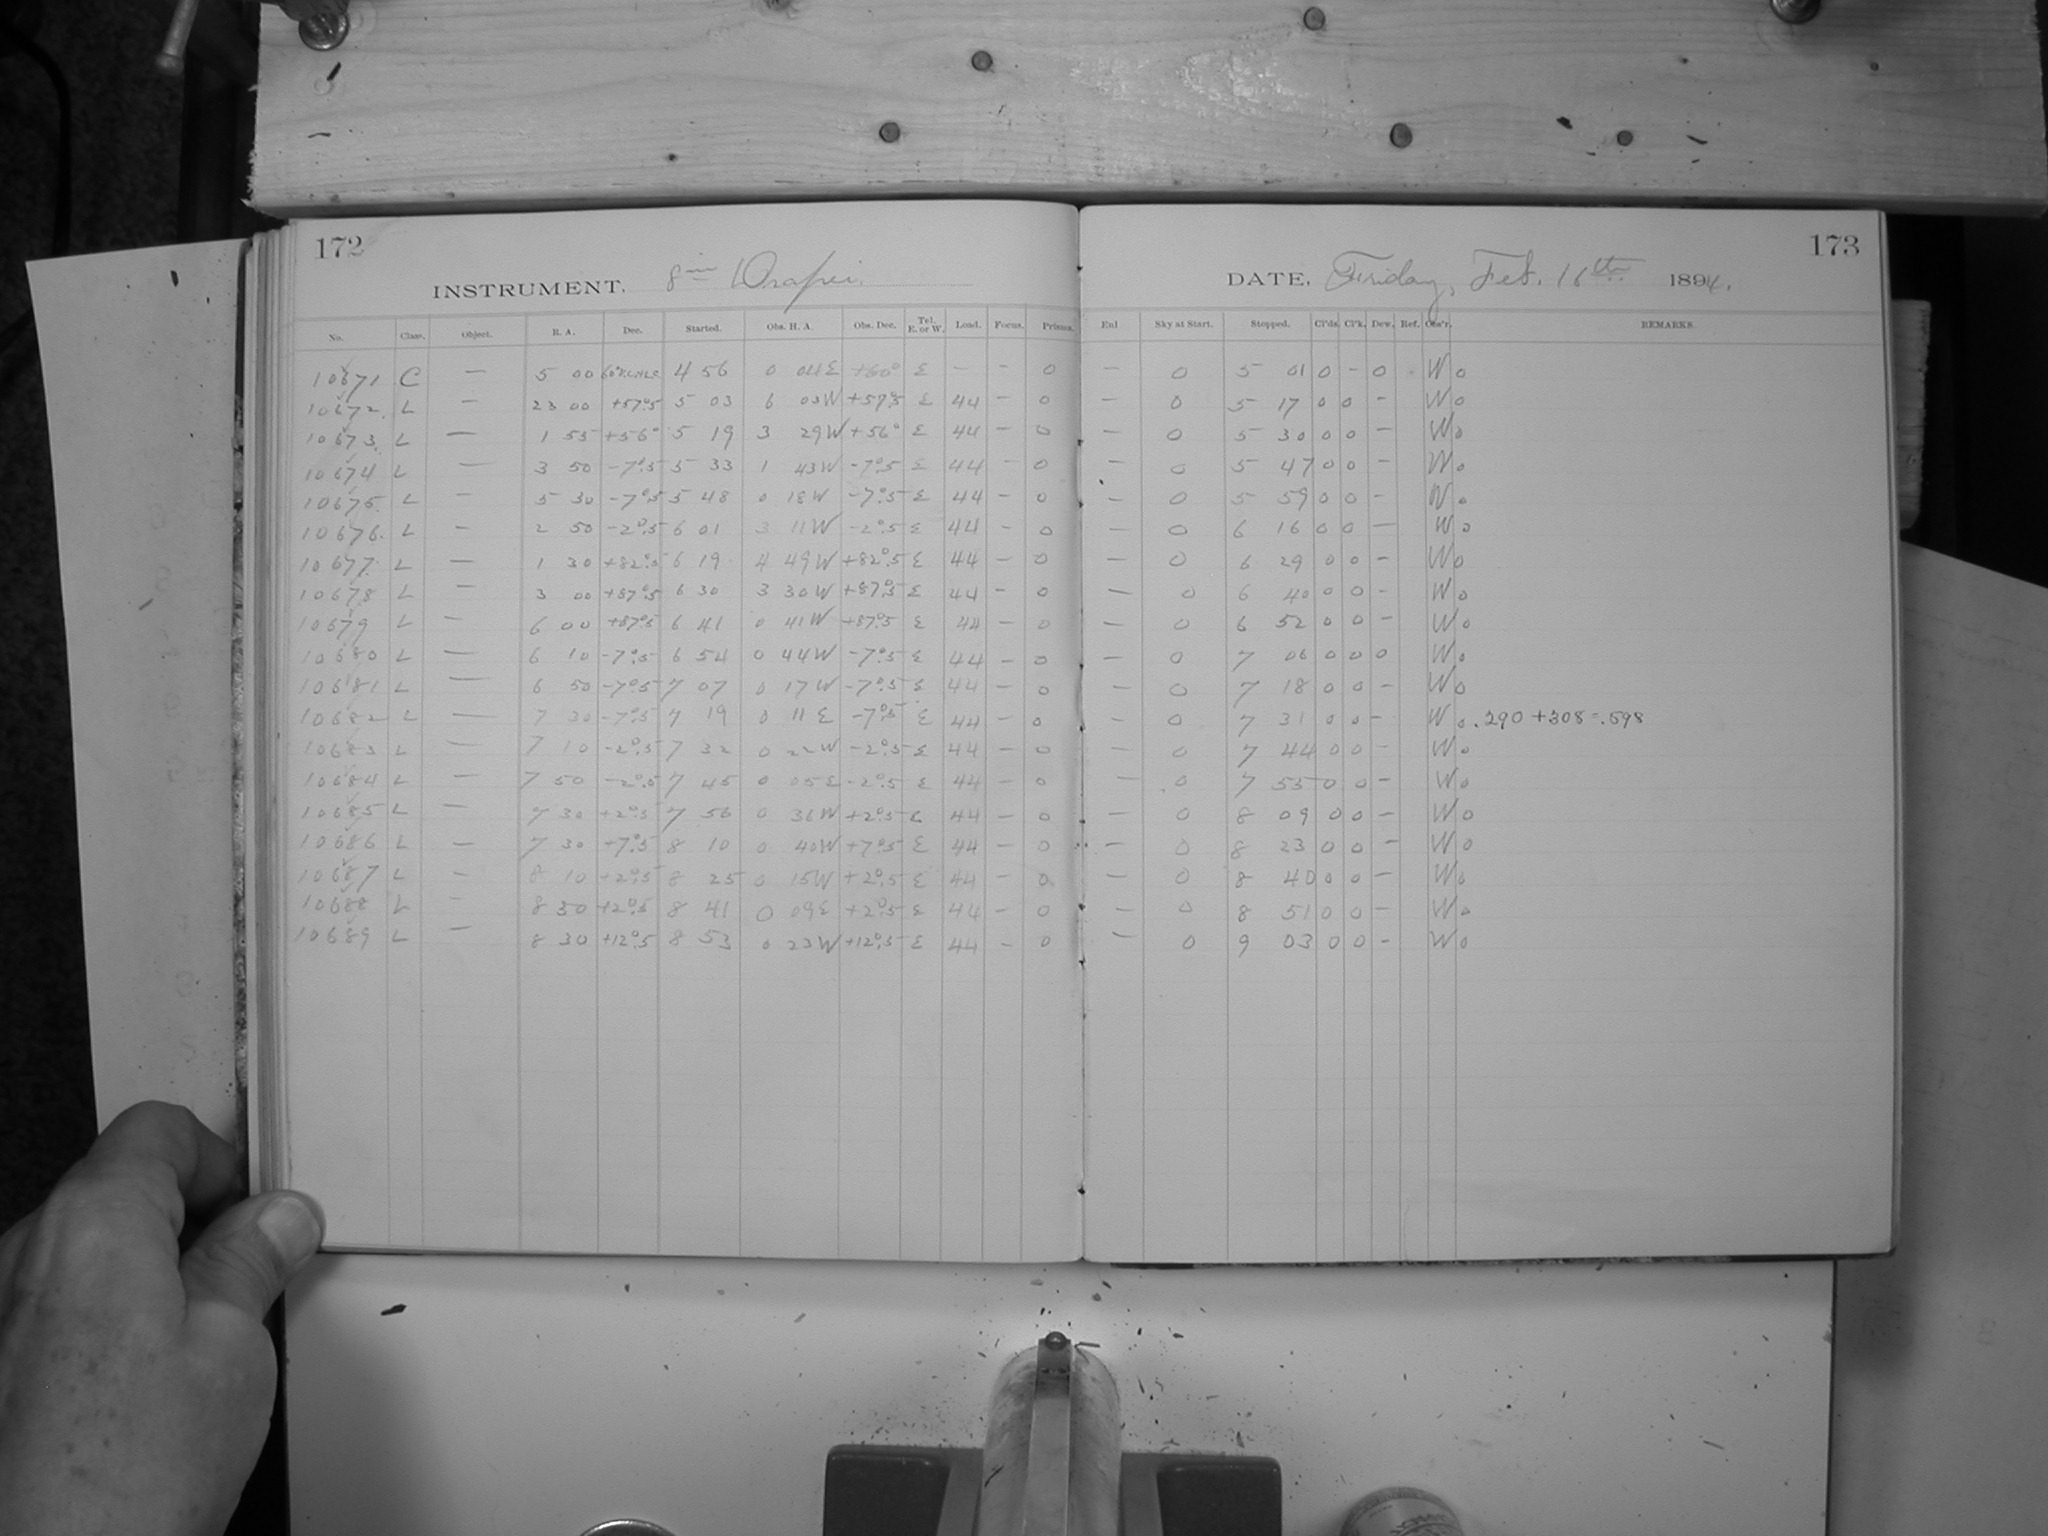 172
173
INSTRUMENT. 8 in Draper.
DATE, Friday, Feb. 16th 1894.
No. Class. Object. R. A. Dec. Started. Obs. H. A. Obs. Dec. Tel. E. or W. Load. Focus. Prisms. Enl Sky at Start. Stopped. Cl'ds. Cl'k. Dew. Ref. Obs'r. REMARKS.
10671 C — 5 00 4 56 0 04 E +60° E — - 0 — 0 5 01 0 - 0 W 0
10672 L — 23 00 +57°.5 5 03 6 03 W +57°.5 E 44 - 0 — 0 5 17 0 0 - W 0
10673 L — 1 55 +56° 5 19 3 29 W +56° E 44 - 0 — 0 5 30 0 0 - W 0
10674 L — 3 50 -7°.5 5 33 1 43 W -7°.5 E 44 - 0 — 0 5 47 0 0 - W 0
10675 L — 5 30 -7°.5 5 48 0 18 W -7°.5 E 44 - 0 — 0 5 59 0 0 - W 0
10676 L — 2 50 -2°.5 6 01 3 11 W -2°.5 E 44 - 0 — 0 6 16 0 0 — W 0
10677 L — 1 30 +82°.5 6 19 4 49 W +82°.5 E 44 - 0 — 0 6 29 0 0 - W 0
10678 L — 3 00 +87°.5 6 30 3 30 W +87°.5 E 44 - 0 — 0 6 40 0 0 - W 0
10679 L — 6 00 +87°.5 6 41 0 41 W +87°.5 E 44 - 0 — 0 6 52 0 0 - W 0
10680 L — 6 10 -7°.5 6 54 0 44 W -7°.5 E 44 - 0 — 0 7 06 0 0 0 W 0
10681 L — 6 50 -7°.5 7 07 0 17 W -7°.5 E 44 - 0 — 0 7 18 0 0 - W 0
10682 L — 7 30 -7°.5 7 19 0 11 E -7°.5 E 44 - 0 — 0 7 31 0 0 - W 0 .290 + 308 = .598
10683 L — 7 10 -2°.5 7 32 0 22 W -2°.5 E 44 - 0 — 0 7 44 0 0 - W 0
10684 L — 7 50 -2°.5 7 45 0 05 E -2°.5 E 44 - 0 — 0 7 55 0 0 - W 0
10685 L — 7 30 +2°.5 7 56 0 36 W +2°.5 E 44 - 0 — 0 8 09 0 0 - W 0
10686 L — 7 30 +7°.5 8 10 0 40 W +7°.5 E 44 - 0 — 0 8 23 0 0 - W 0
10687 L — 8 10 +2°.5 8 25 0 15 W +2°.5 E 44 - 0 — 0 8 40 0 0 - W 0
10688 L — 8 50 +2°.5 8 41 0 09 E +2°.5 E 44 - 0 — 0 8 51 0 0 - W 0
10689 L — 8 30 +12°.5 8 53 0 23 W +12°.5 E 44 - 0 — 0 9 03 0 0 - W 0